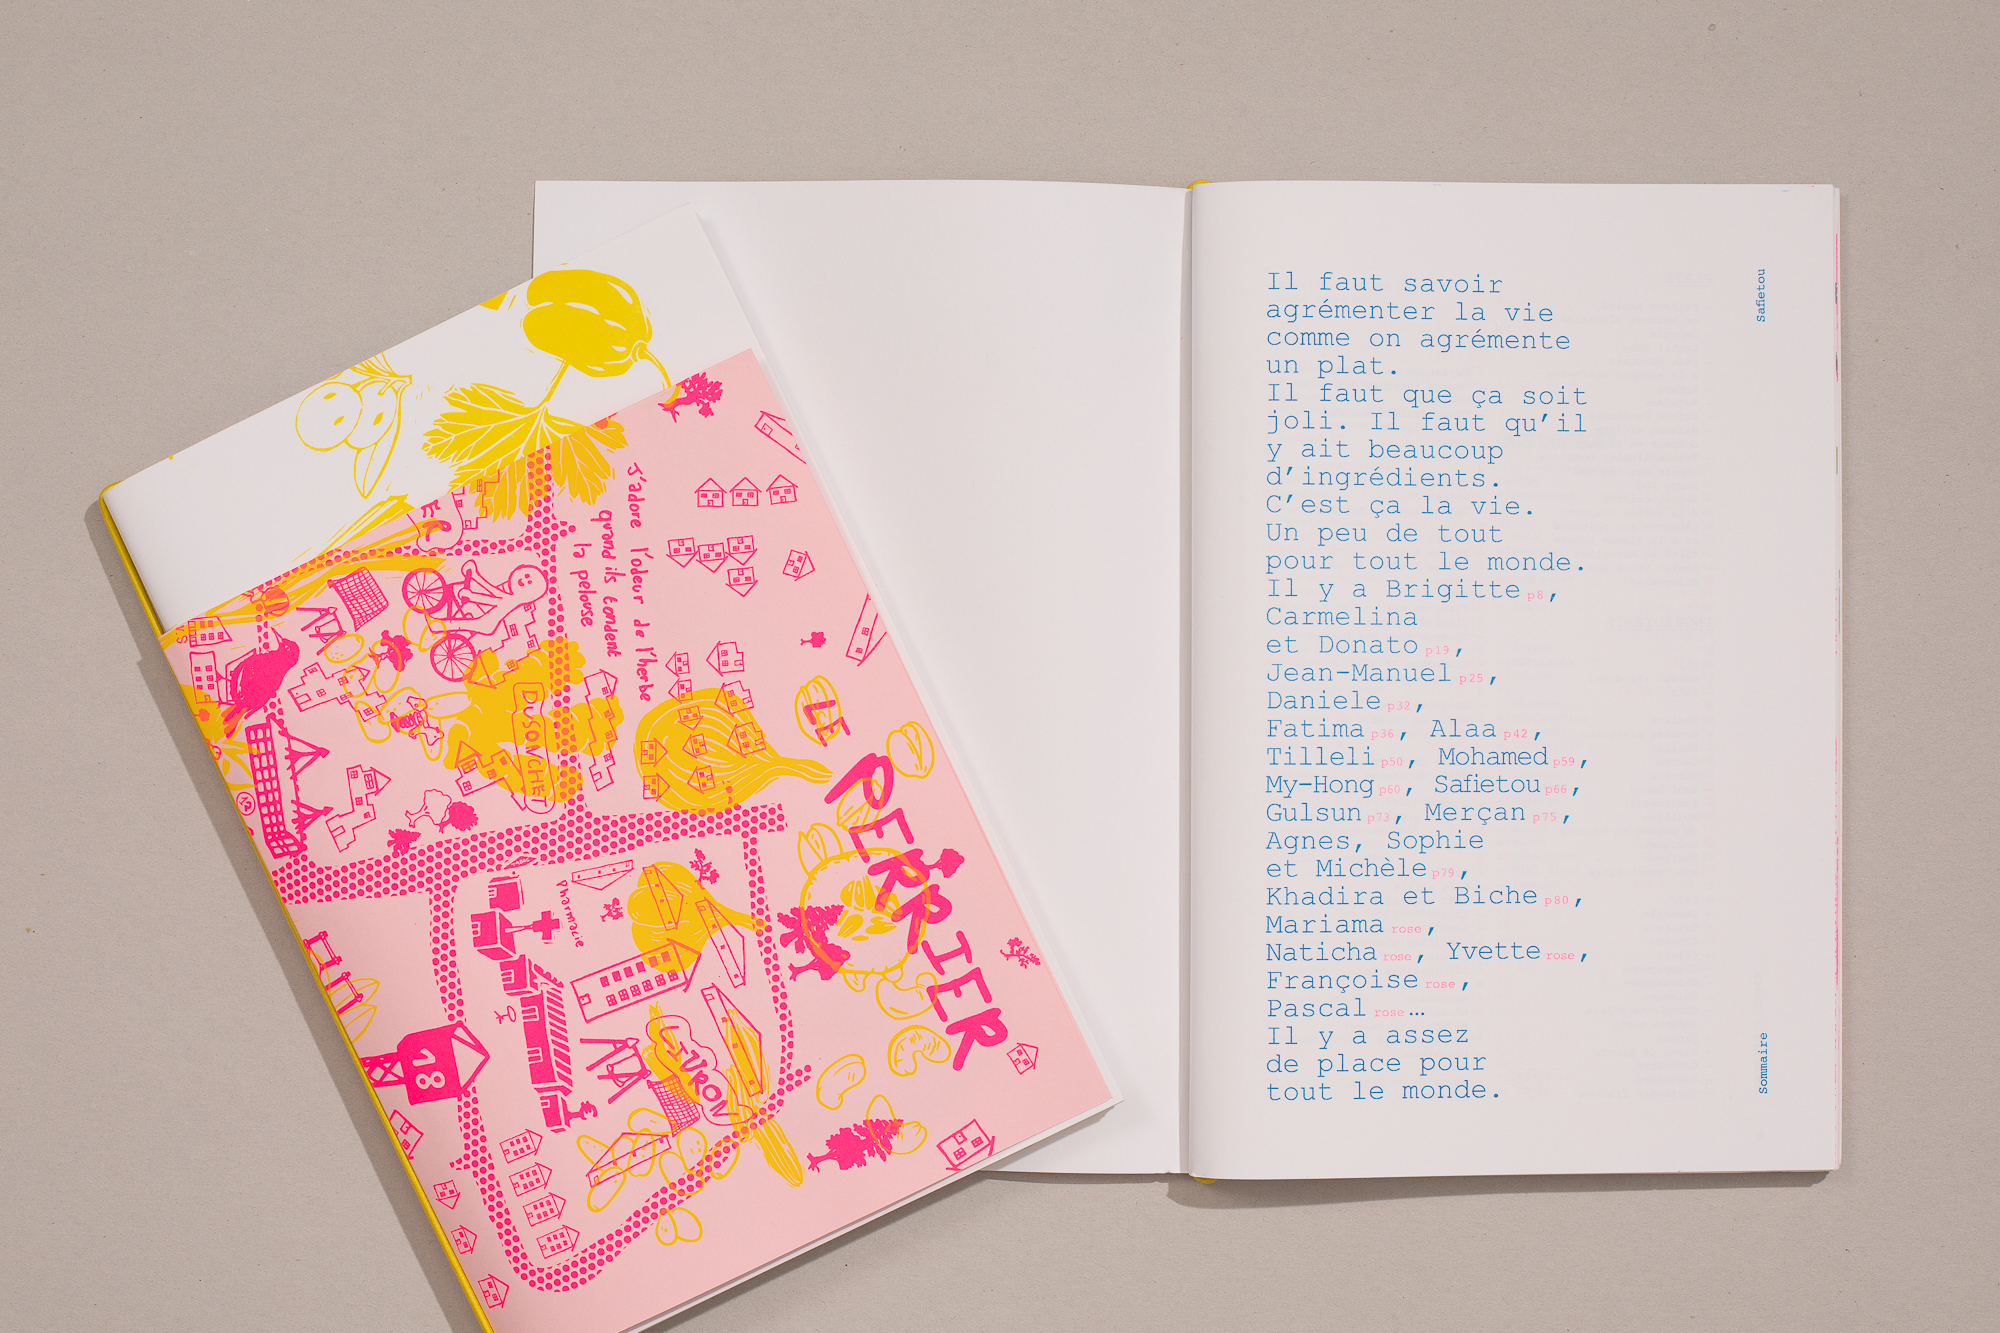 J'adore l'odeur de l'herbe
quand ils tondent
la pelouse
DUSONCHET
LE PERRIER
Pharmacie
LIVRON
18
Il faut savoir
agrémenter la vie
comme on agrémente
un plat.
Il faut que ça soit
joli. Il faut qu’il
y ait beaucoup
d’ingrédients.
C’est ça la vie.
Un peu de tout
pour tout le monde.
Il y a Brigitte p8,
Carmelina
et Donato p19,
Jean-Manuel p25,
Daniele p32,
Fatima p36, Alaa p42,
Tilleli p50, Mohamed p59,
My-Hong p60, Safietou p66,
Gulsun p73, Merçan p75,
Agnes, Sophie
et Michèle p79,
Khadira et Biche p80,
Mariama rose,
Naticha rose, Yvette rose,
Françoise rose,
Pascal rose…
Il y a assez
de place pour
tout le monde.
Safietou
Sommaire